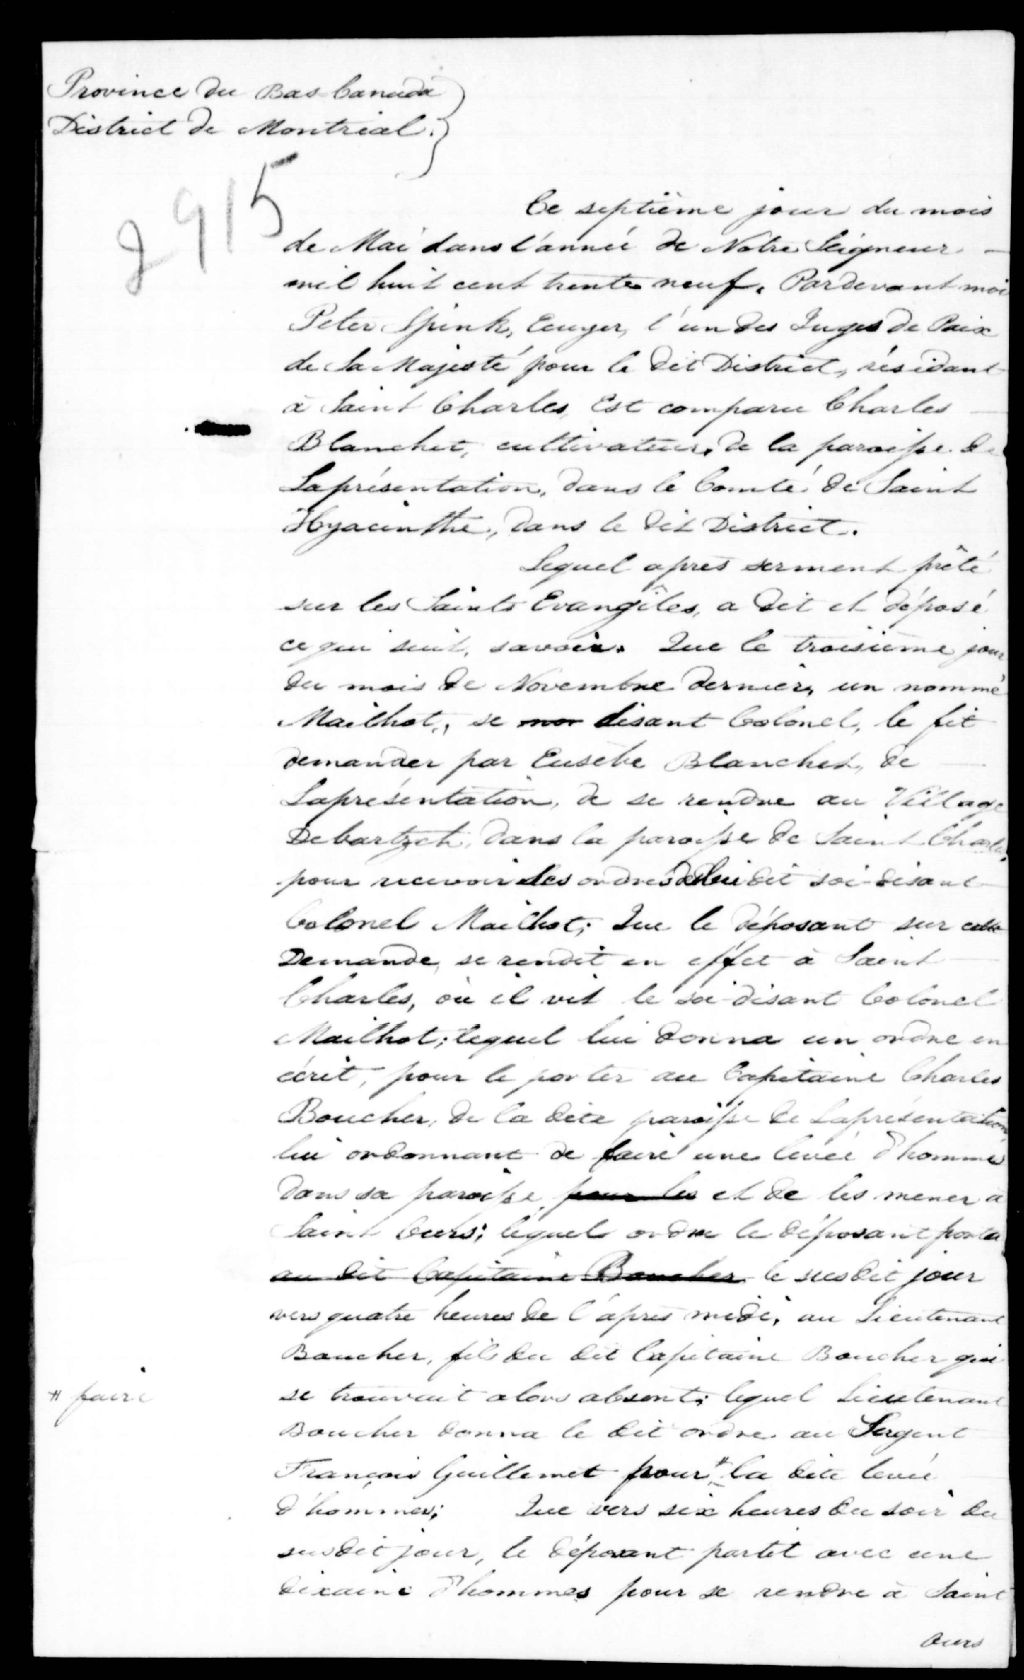 Province du Bas Canada
District de Montréal.
2915
Ce septième jour du mois
de Mai dans l'année de Notre Seigneur
mil huit cent trente neuf. Pardevant moi
Peter Spink, Ecuyer, l'un des Juges de Paix
de Sa Majesté pour le dit District, résidant
à Saint Charles, Est comparu Charles
Blanchet, cultivateur, de la paroisse de
Laprésentation, dans le Comté de Saint
Hyacinthe, dans le dit District.
Lequel après serment prêté
sur les Saints Evangiles, a dit et déposé
ce qui suit, savoir. Que le troisième jour
du mois de Novembre dernier, un nommé
Mailhot, se disant Colonel, le fit
demander par Eusèbe Blanchet, de
Laprésentation, de se rendre au Village
Debartzch, dans la paroisse de Saint Charles,
pour recevoir les ordres du dit soi-disant
Colonel Mailhot; Que le déposant sur cette
Demande, se rendit en effet à Saint
Charles, où il vit le soi-disant Colonel
Mailhot; lequel lui donna un ordre en
écrit, pour le porter au Capitaine Charles
Boucher, de la dite paroisse de Laprésentation
lui ordonnant de faire une levée d'hommes
dans sa paroisse, pour les et de les mener à
Saint Ours; lequel ordre le déposant porta
au dit Capitaine Boucher le susdit jour
vers quatre heures de l'après midi, au Lieutenant
Boucher, fils du dit Capitaine Boucher qui
se trouvait alors absent; lequel Lieutenant
Boucher donna le dit ordre au Sergent
# faire
François Guillemet pour # la dite levée
d'hommes; Que vers six heures du soir du
susdit jour, le déposant partit avec une
dixaine d'hommes pour se rendre à Saint
Ours